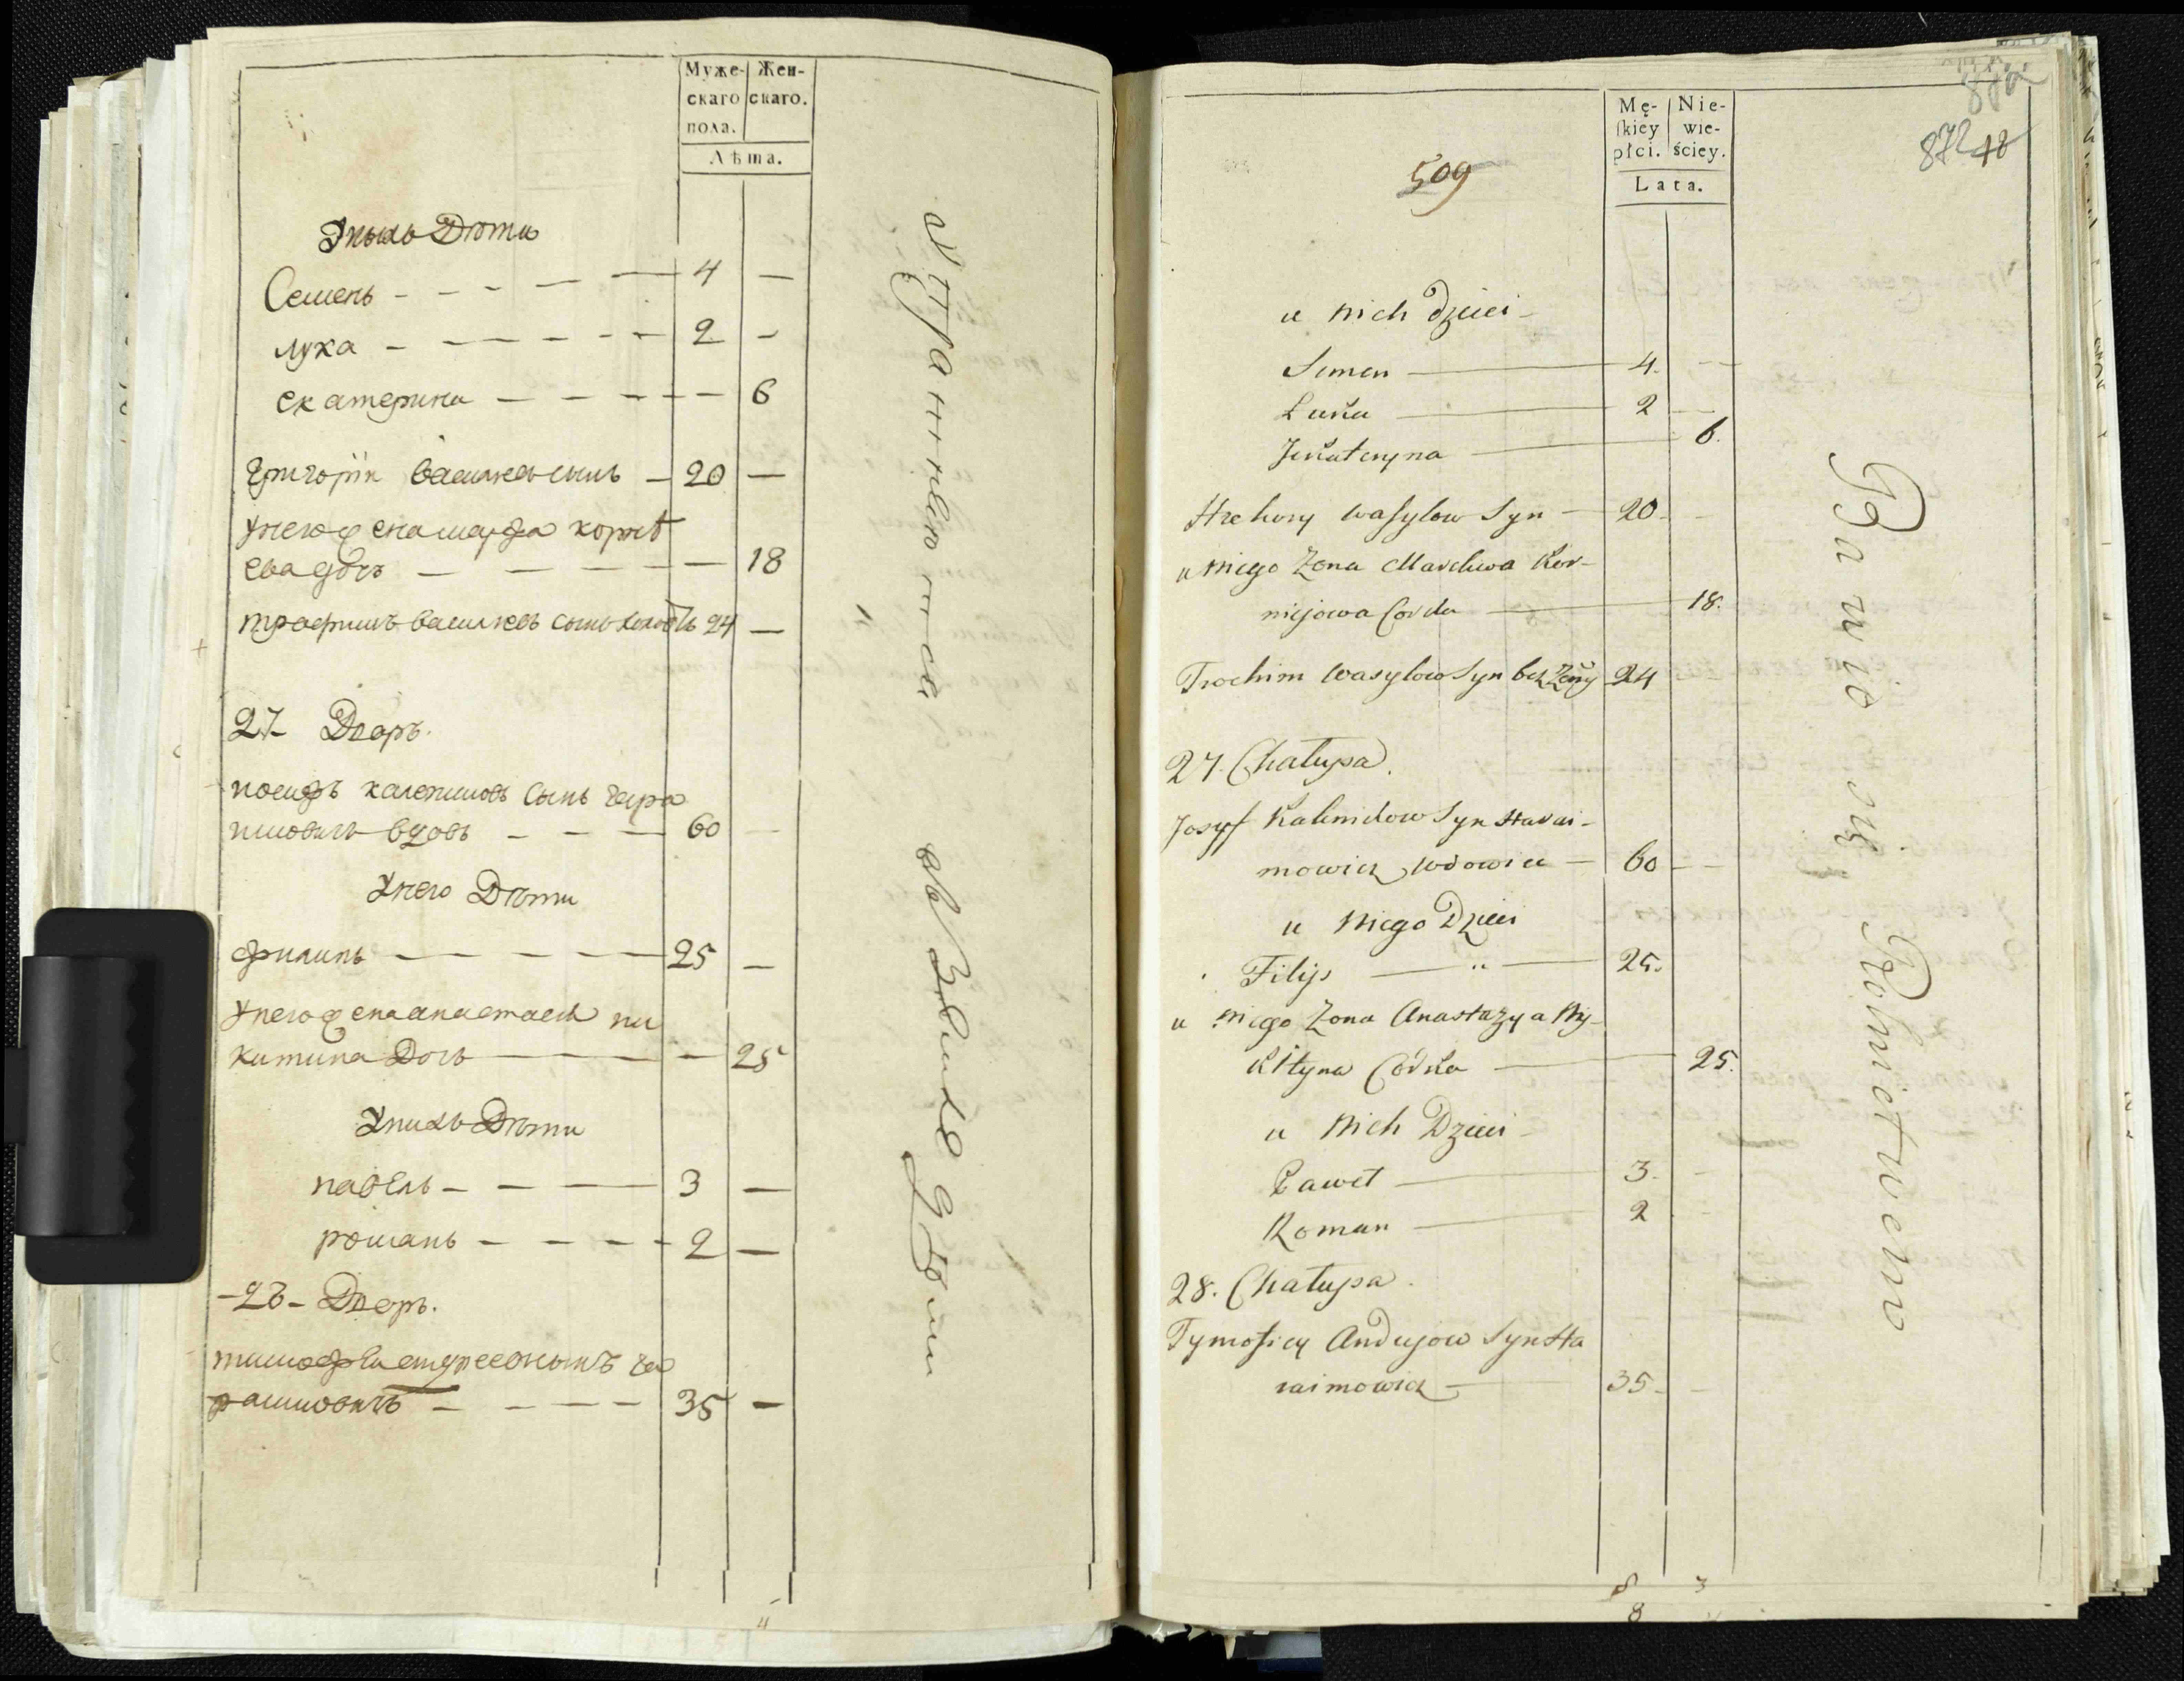 Муже-
скаго
пола.
Жен-
скаго.
Лѣта.
Унихъ Дѣти
Семенъ - - - - - 4 -
лука - - - - - - 2 -
екатерина - - - - - 6
Григорій василіевъ сынъ - 20 -
унего жена марфа корнѣ
ева дочъ - - - - - 18
трафимъ василіевъ сынъ холостъ 24 -
27 Дворъ.
иосифъ сынъ гара
имовичъ вдовъ - - - 60 -
Унего Дѣти
филипъ - - - - - 25 -
унего жена анастасія ни
китина Дочъ - - - 25
Унихъ Дѣти
павелъ - - - 3 -
романъ - - - - 2 -
-28- Дворъ.
тимофѣи сынъ га
раимовичъ - - - - 35 -
Упражняются въ Земледѣліи
509
Mę-
ſkiey
płci.
Nie-
wie-
ściey.
Lata.
872 48
u nich dzieci -
Semen - 4. -
Łuka - 2 -
Jekateryna - 6.
Hrehory wasylow Syn - 20. -
u niego Zona Marchwa Kor-
niejowa Corka - 18.
Trochim wasylow Syn bez Zony 24
27. Chałupa.
Josyf Kalenikow Syn Harai-
mowicz wdowiec - 60 -
u niego Dzieci
Filip - " - 25.
u niego Zona Anastazya Ny-
kityna Córka - 25.
u nich Dzieci -
Paweł - 3. -
Roman - 2 -
28. Chałupa.
Tymofiey Andrejow Syn Ha
raimowicz - 35. -
8 3
8
Bawią się Rolnictwem